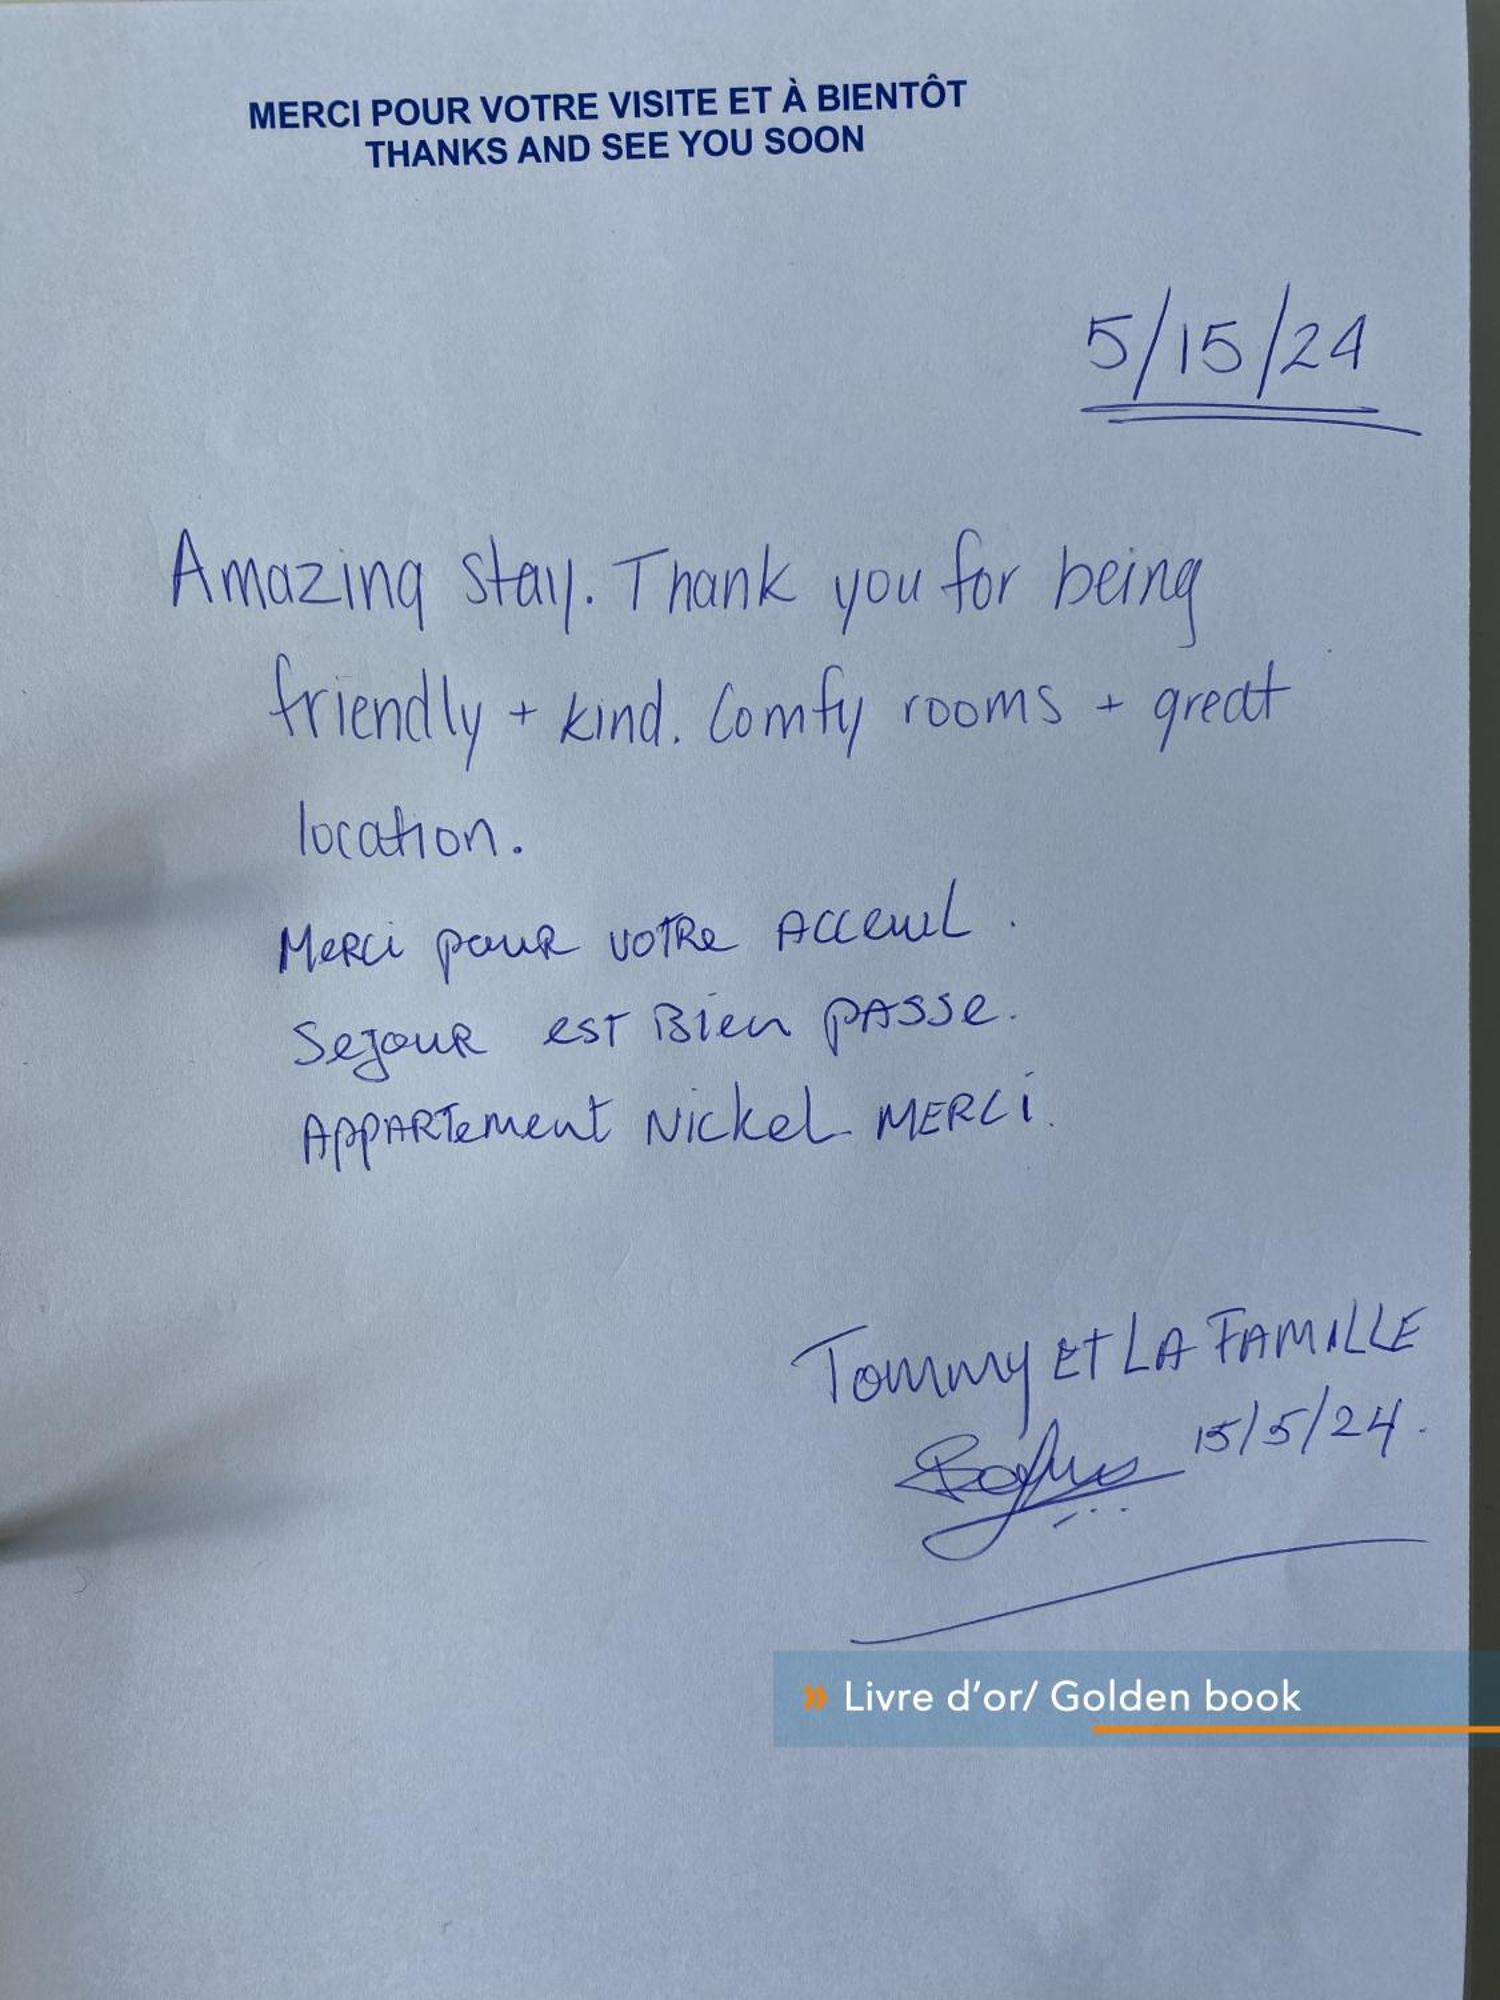 MERCI POUR VOTRE VISITE ET À BIENTÔT
THANKS AND SEE YOU SOON
5/15/24
Amazing stay. Thank you for being
friendly + kind. Comfy rooms + great
location.
Merci pour votre Acceuil.
Sejour est Bien passe.
Appartement Nickel MERCI.
Tommy ET LA FAMILLE
15/5/24.
» Livre d'or/ Golden book